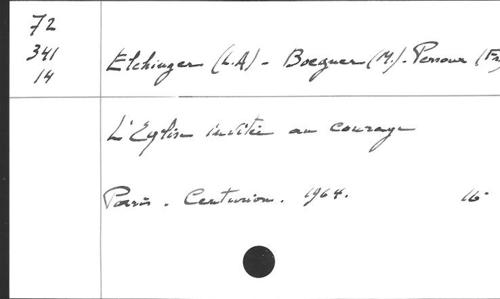 72
341
14
Elchinger (L.A) - Boegner (M.) - Perroux (Fr
L'Eglise invitée au courage
Paris. Centurion. 1964. 16°